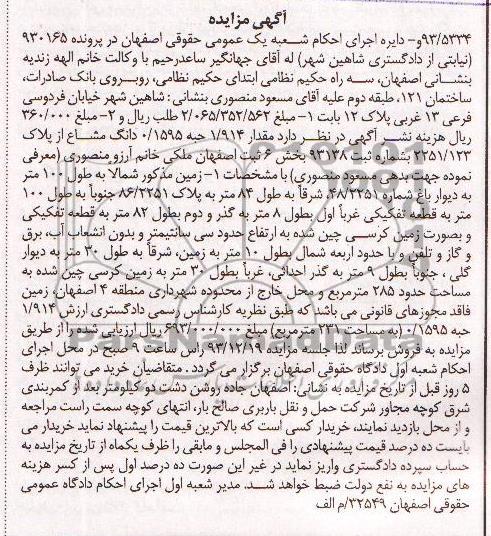 آگهی مزایده
۹۳/۵۳۳۴و- دایره اجرای احکام شعبه یک عمومی حقوقی اصفهان در پرونده ۹۳۰۱۶۵
(نیابتی از دادگستری شاهین شهر) له آقای جهانگیر ساعدرحیم با وکالت خانم الهه زندیه
بنشانی اصفهان، سه راه حکیم نظامی ابتدای حکیم نظامی، روبروی بانک صادرات،
ساختمان ۱۲۱، طبقه دوم علیه آقای مسعود منصوری بنشانی: شاهین شهر خیابان فردوسی
فرعی ۱۳ غربی پلاک ۱۲ بابت ۱- مبلغ ۲/۰۶۵/۳۵۲/۵۶۲ طلب ریال و ۲- مبلغ ۳۶۰/۰۰۰
ریال هزینه نشر آگهی در نظر دارد مقدار ۱/۹۱۴ حبه ۰/۱۵۹۵ دانگ مشاع از پلاک
۲۲۵۱/۱۲۳ بشماره ثبت ۹۳۱۲۸ بخش ۶ ثبت اصفهان ملکی خانم آرزو منصوری (معرفی
نموده جهت بدهی مسعود منصوری) با مشخصات ۱- زمین مذکور شمالا به طول ۱۰۰ متر
به دیوار باغ شماره ۴۸/۲۲۵۱، شرقاً به طول ۸۴ متر به پلاک ۸۶/۲۲۵۱ جنوباً به طول ۱۰۰
متر به قطعه تفکیکی غرباً اول بطول ۸ متر به گذر و دوم بطول ۸۲ متر به قطعه تفکیکی
و بصورت زمین کرسی چین شده به ارتفاع حدود سی سانتیمتر و بدون انشعاب آب، برق
و گاز و تلفن و با حدود اربعه شمال بطول ۱۰ متر به زمین، شرقاً به طول ۳۰ متر به دیوار
گلی، جنوباً بطول ۹ متر به گذر احداثی، غرباً بطول ۳۰ متر به زمین کرسی چین شده به
مساحت حدود ۲۸۵ مترمربع و محل خارج از محدوده شهرداری منطقه ۴ اصفهان، زمین
فاقد مجوزهای قانونی می باشد که طبق نظریه کارشناس رسمی دادگستری ارزش ۱/۹۱۴
حبه ۰/۱۵۹۵ (به مساحت ۲۳۱ مترمربع) مبلغ ۶۹۳/۰۰۰/۰۰۰ ریال ارزیابی شده را از طریق
مزایده به فروش برساند لذا جلسه مزایده ۹۳/۱۲/۱۹ راس ساعت ۹ صبح در محل اجرای
احکام شعبه اول دادگاه حقوقی اصفهان برگزار می گردد. متقاضیان خرید می توانند ظرف
۵ روز قبل از تاریخ مزایده به نشانی: اصفهان جاده روشن دشت دو کیلومتر بعد از کمربندی
شرق کوچه مجاور شرکت حمل و نقل باربری صالح بار، انتهای کوچه سمت راست مراجعه
و از محل بازدید نمایند، خریدار کسی است که بالاترین قیمت را پیشنهاد نماید خریدار می
بایست ده درصد قیمت پیشنهادی را فی المجلس و مابقی را ظرف یکماه از تاریخ مزایده به
حساب سپرده دادگستری واریز نماید در غیر این صورت ده درصد اول پس از کسر هزینه
های مزایده به نفع دولت ضبط خواهد شد. مدیر شعبه اول اجرای احکام دادگاه عمومی
حقوقی اصفهان ۳۲۵۴۹/م الف